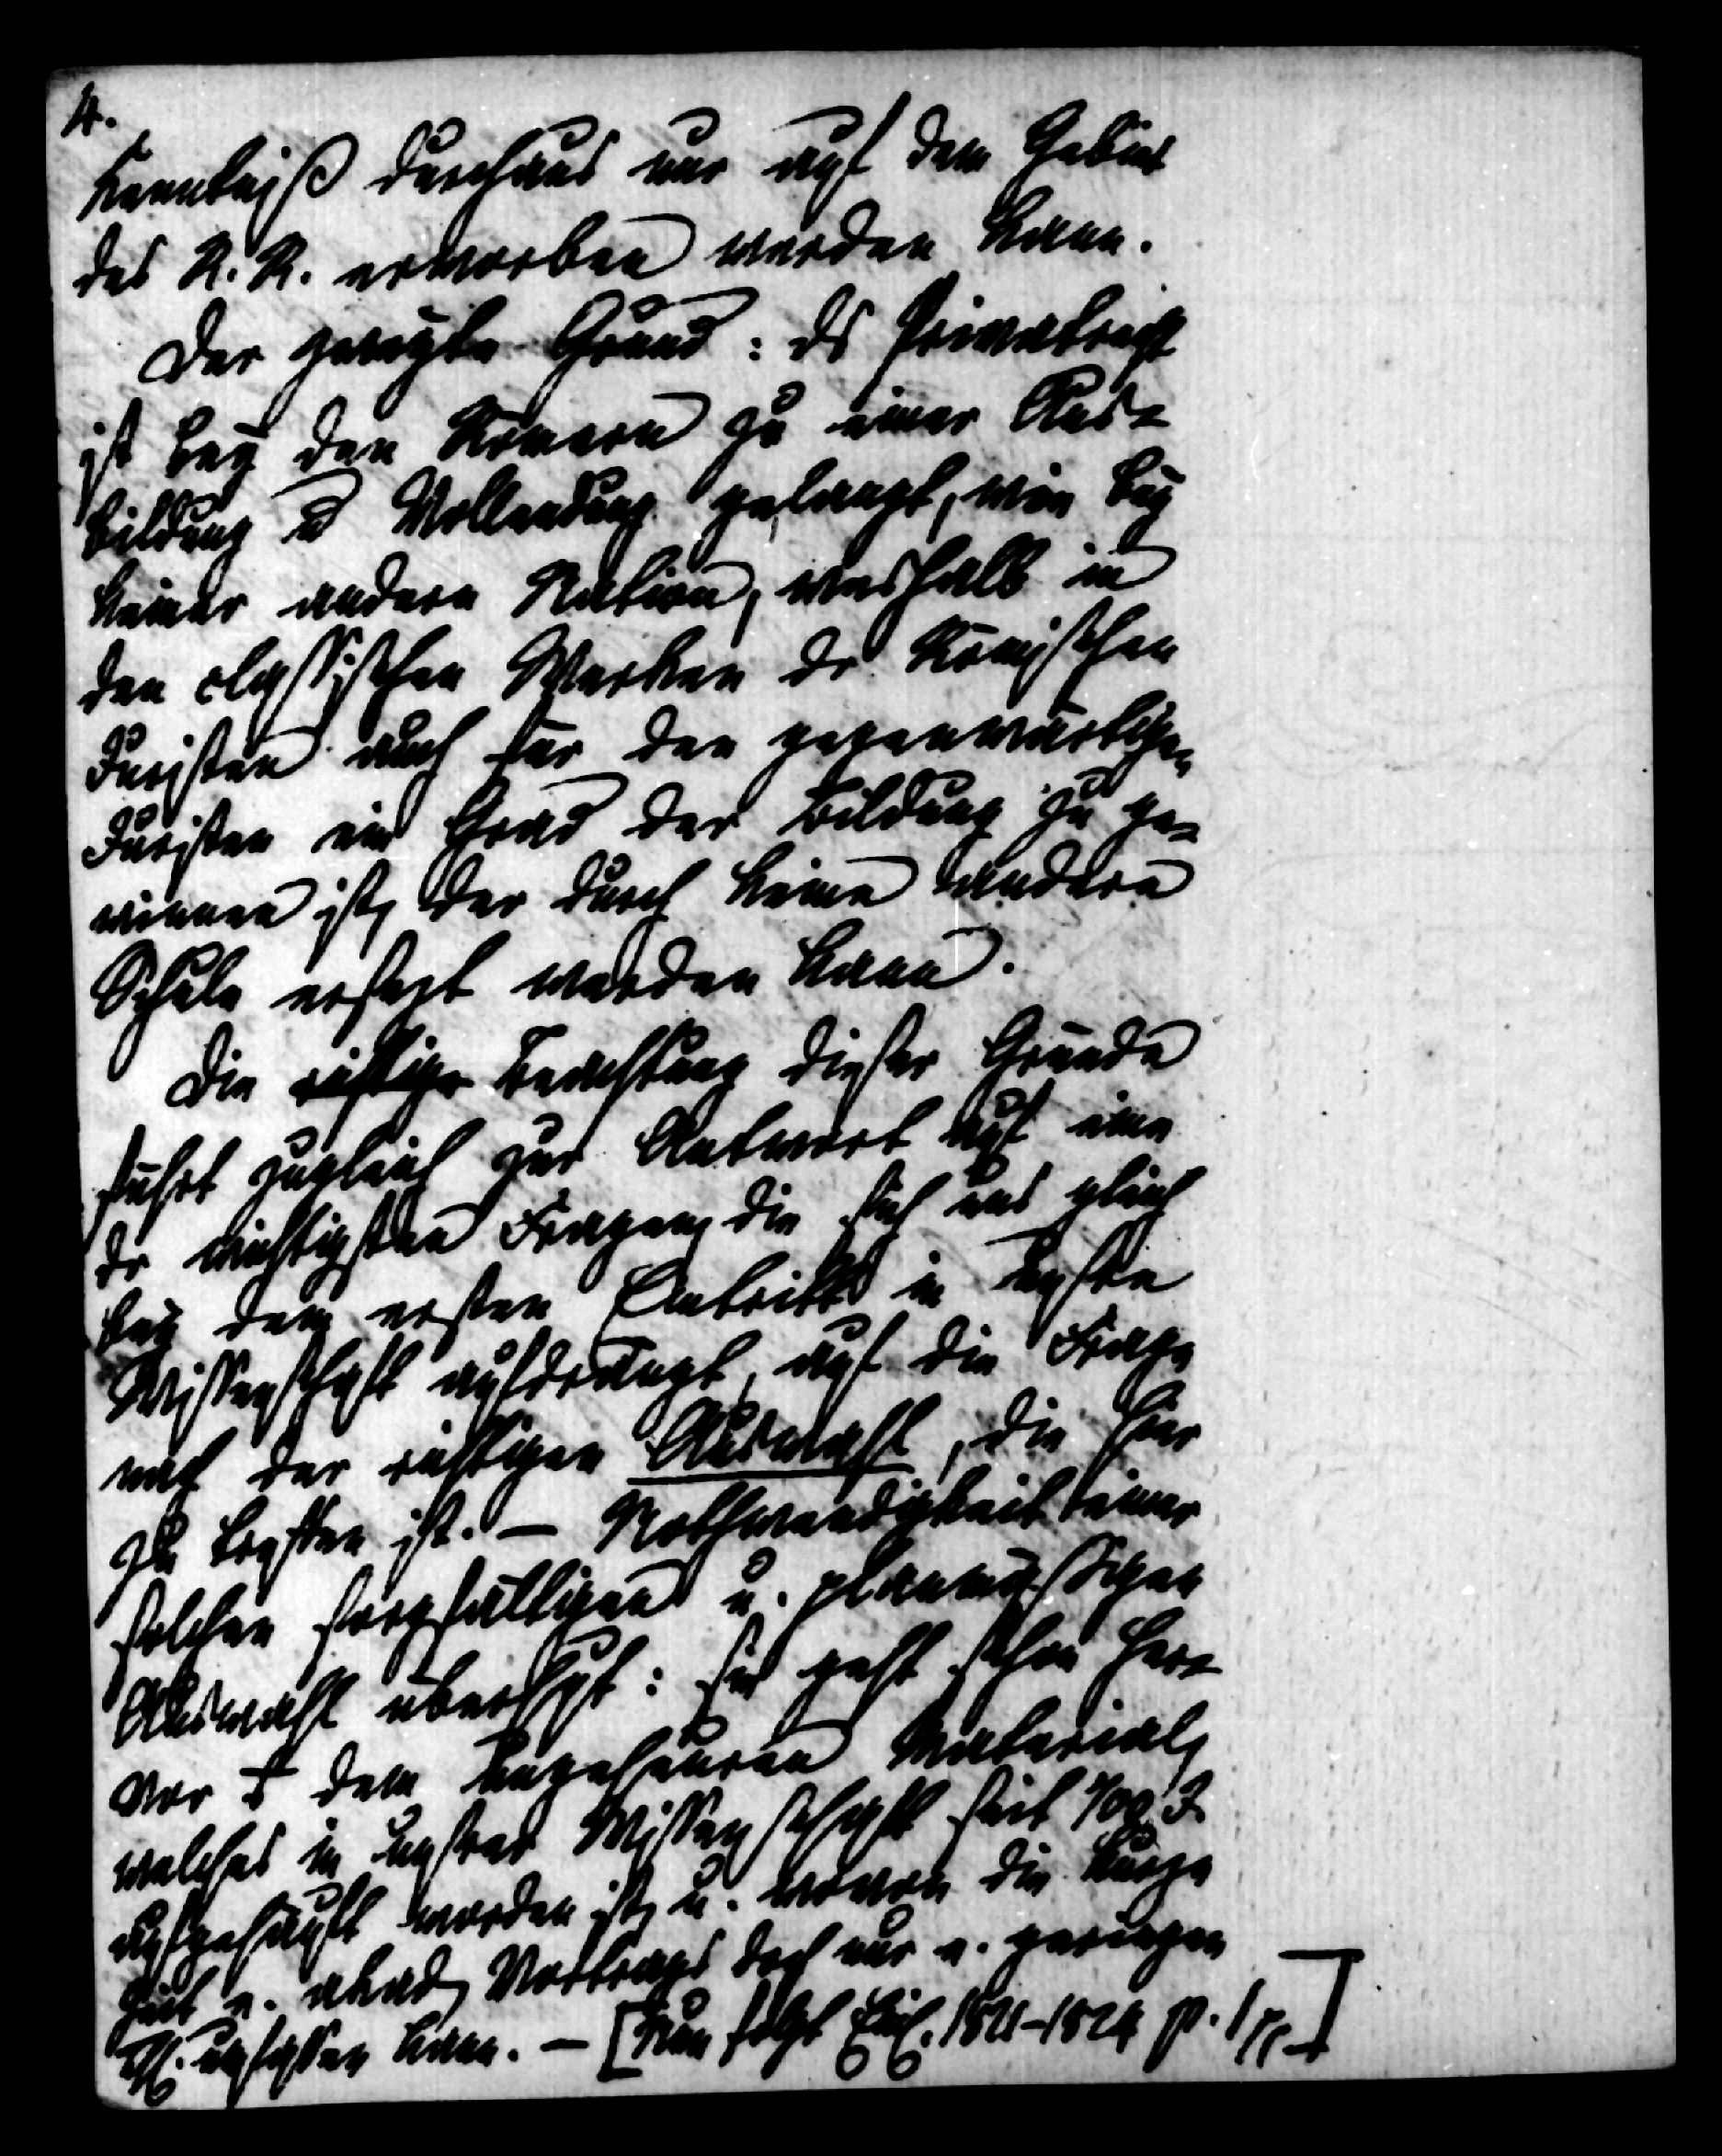 4.
Kenntniß durchaus nur auf dem Gebiet
des R. R. erworben werden kann.
Der zweyte Grund: ds Privatrecht
ist bey den Römern zu einer Aus-
bildung u Vollendung gelangt, wie bey
keiner andern Nation, weshalb in
den classischen Werken dr Römischen
Juristen auch für den gegenwärtigen
Juristen ein Grad der Bildung zu ge-
winnen ist, der durch keine andere
Schule ersetzt werden kann.
Die richtige Beachtung dieser Gründe
führt zugleich zur Antwort auf eine
dr wichtigsten Fragen, die sich uns gleich
bey dem ersten Eintritt in unsere
Wissenschaft aufdrängt, auf die Frage
nach der richtigen Auswahl, die hier
zu treffen ist. — Nothwendigkeit einer
solchen sorgfältigen u. planmäßigen
Auswahl überhpt: sie geht schon her-
vor dem ungeheuren Material,
welches in unserer Wissenschaft seit 700 J.
aufgehäuft worden ist, u. wovon die kurze
Zeit e. akad. Vortrags doch nur e. geringen
Th. umfassen kann. — [Nun folgt Einl. 1821-1824 p. 1